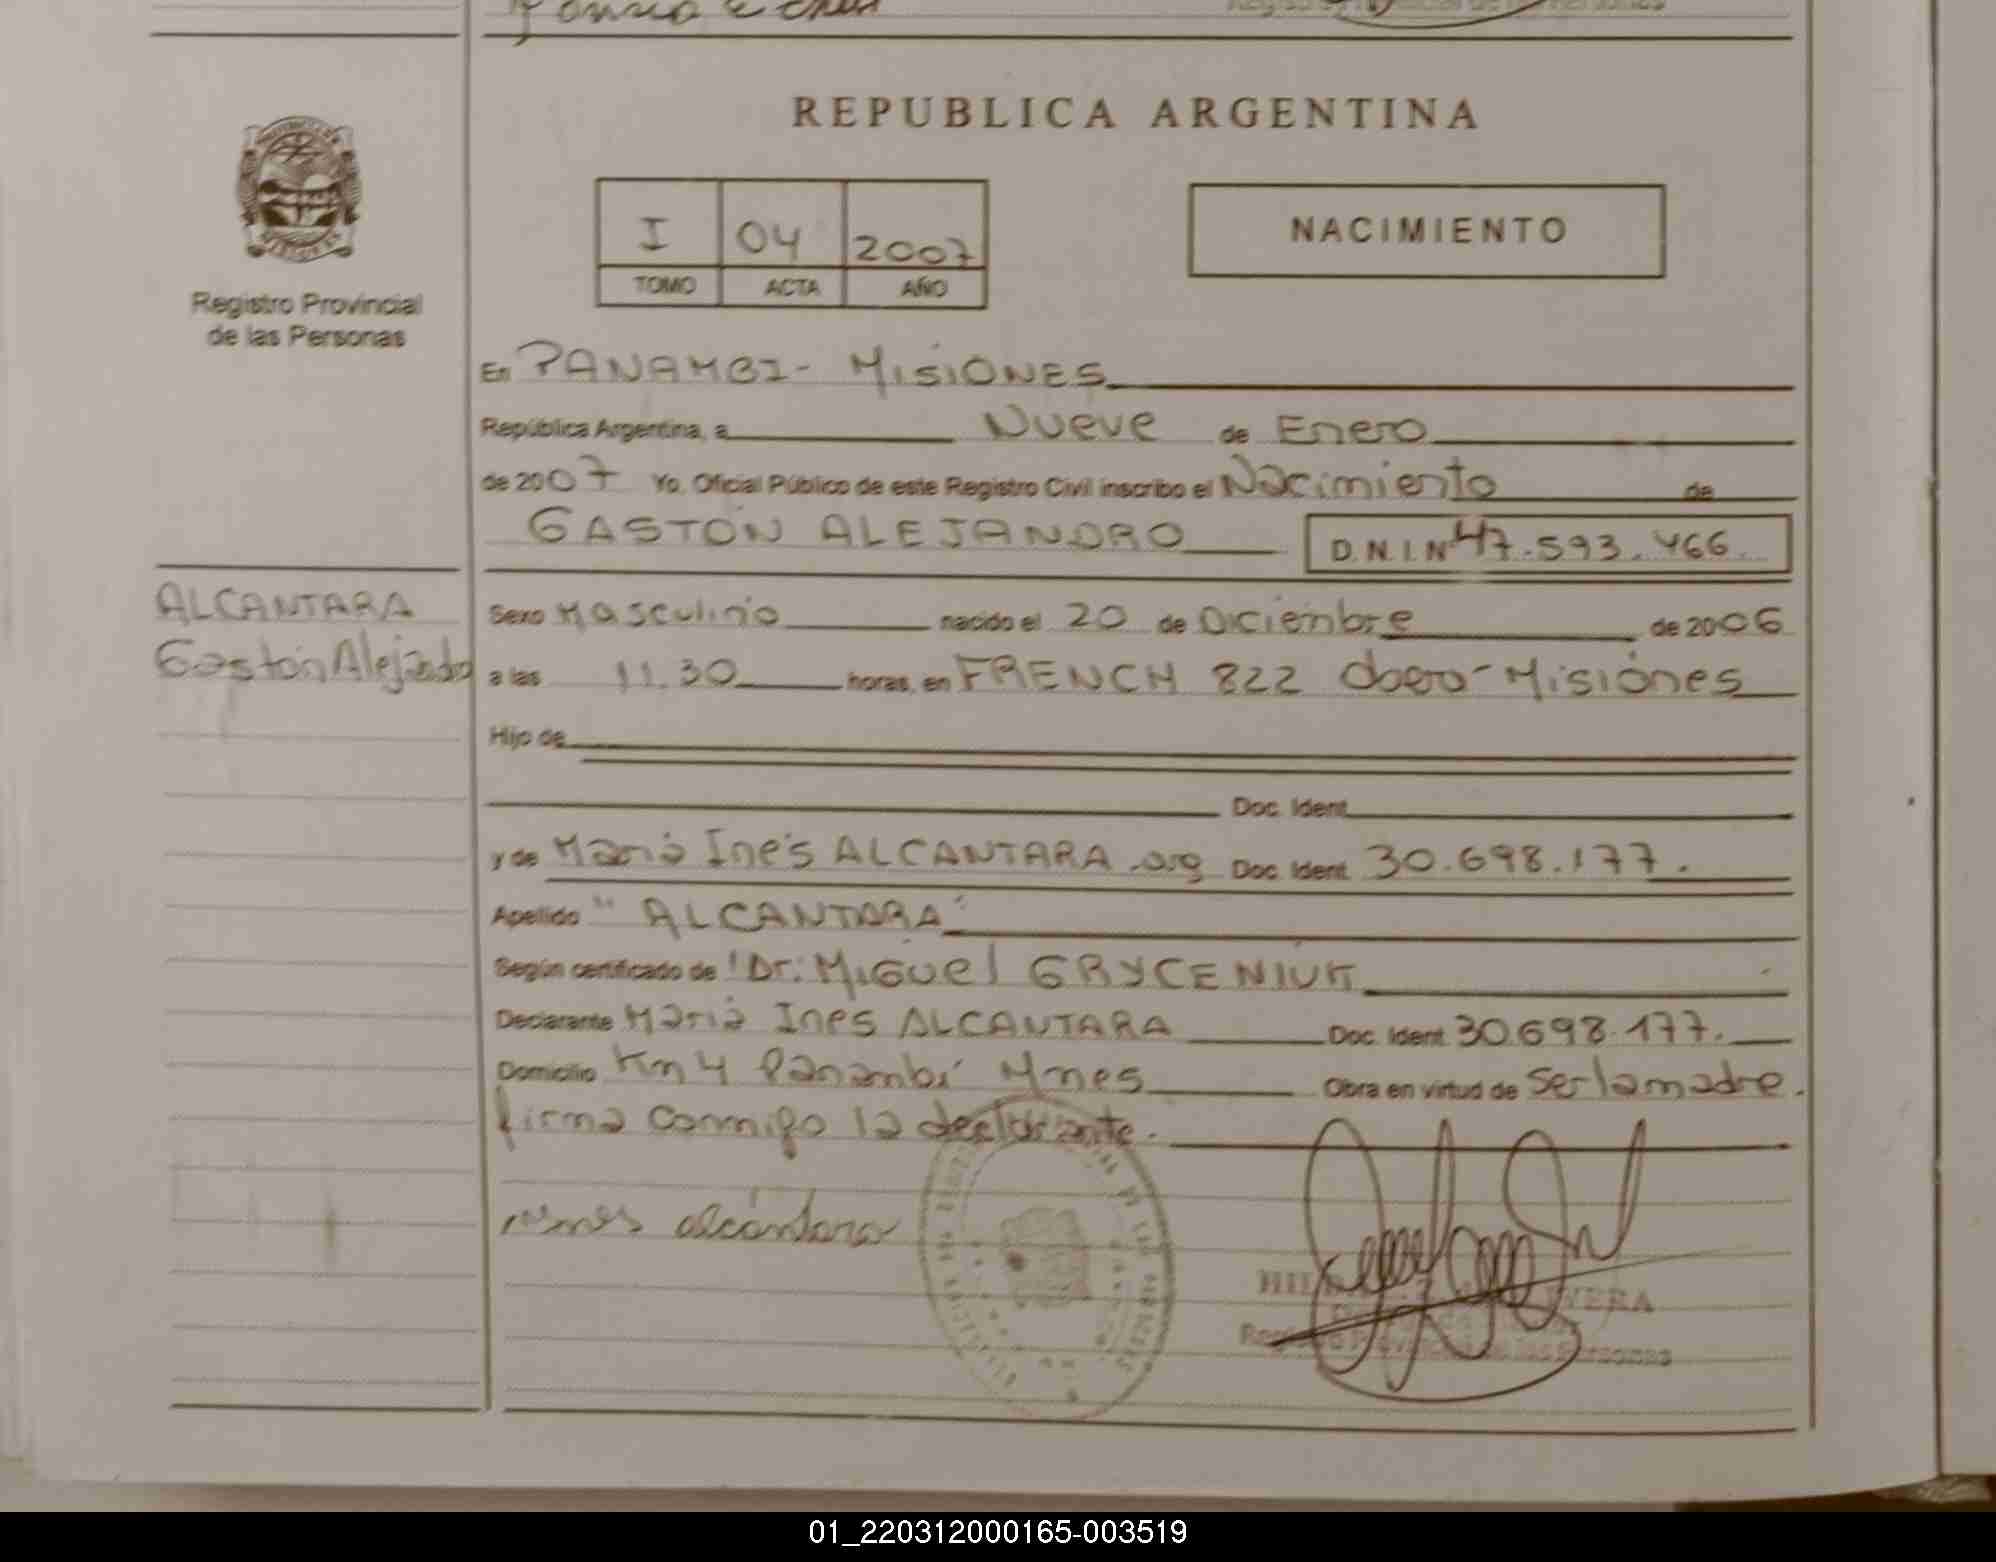 REPUBLICA ARGENTINA
I 04 2007
TOMO ACTA AÑO
NACIMIENTO
Registro Provincial
de las Personas
En PANAMBI - MISIONES
República Argentina, a Nueve de Enero
de 2007 Yo, Oficial Público de este Registro Civil inscribo el Nacimiento de
GASTON ALEJANDRO D.N.I. Nº 47.593.466.
ALCANTARA
Gastón Alejandro
Sexo Masculino nacido el 20 de Diciembre de 2006
a las 11.30 horas, en FRENCH 822 Obero - Misiones
Hijo de
Doc. Ident.
y de Maria Inés ALCANTARA .arg Doc. Ident. 30.698.177.
Apellido "ALCANTARA"
Según certificado de Dr: MIGUEL GRYCENIUK
Declarante Maria Ines ALCANTARA Doc. Ident. 30.698.177.
Domicilio Km 4 Panambi Mnes Obra en virtud de Ser la madre.
firma conmigo la declarante.
alcántara
Registro Provincial de las Personas
01_220312000165-003519